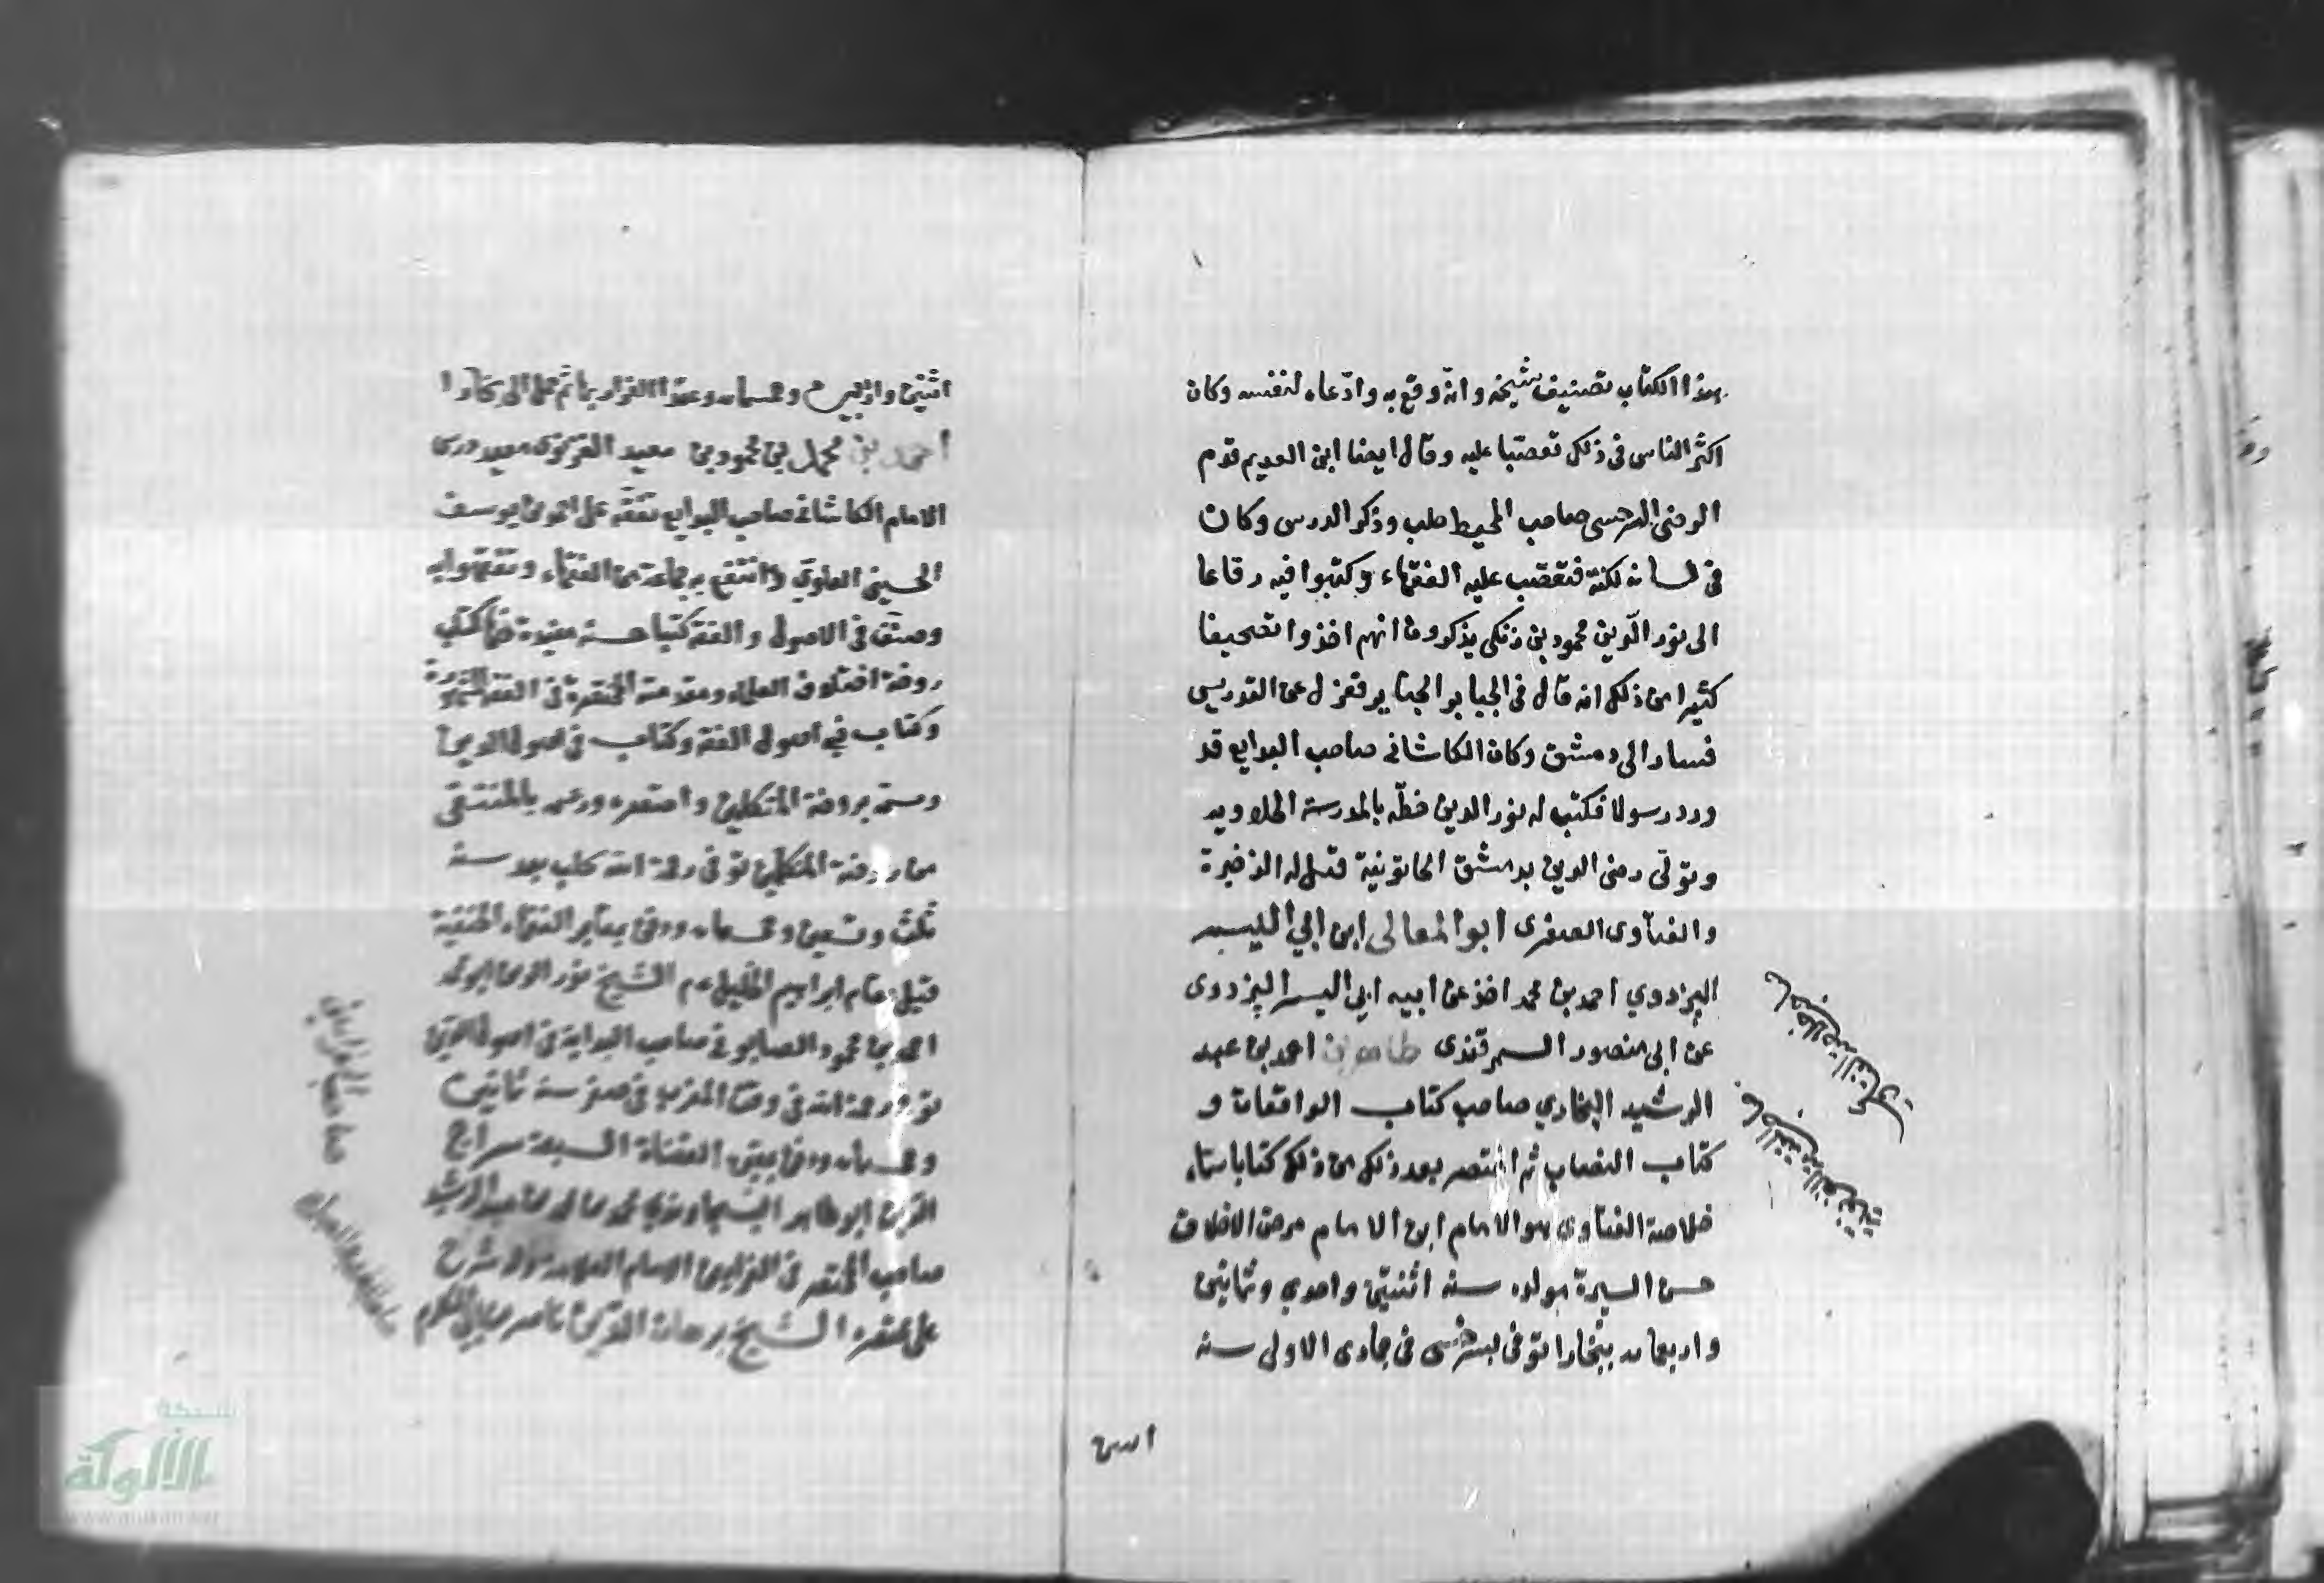 هذا الكتاب تصنيف شيخه وانه وقع به وادّعاه لنفسه وكان
اكثر الناس في ذلك تعصبا عليه وقال ايضا ابن العديم قدم
الرضى السرخسى صاحب المحيط حلب وذكر الدرس وكان
في لسانه لكنة فتعصب عليه الفقهاء وكتبوا فيه رقاعا
الى نور الدين محمود بن زنكى يذكرون انهم اخذوا تصحيفا
كثيرا من ذلك انه قال في الجباير الجناير فعزل عن التدريس
فسار الى دمشق وكان الكاشانى صاحب البدايع قد
ورد رسولا فكتب له نور الدين خطّه بالمدرسة الحلاويه
وتولى رضى الدين بدمشق الخاتونية قيل له الذخيرة
والفتاوى الصغرى ابو المعالى ابن ابي اليسر
البزدوي احمد بن محمد اخذ عن ابيه ابي اليسر البزدوى
عن ابى منصور السمرقندى طاهر بن احمد بن عبد
الرشيد البخاري صاحب كتاب الواقعات و
كتاب النصاب ثم اختصر بعد ذلك من ذلك كتابا سماه
خلاصة الفتاوى هو الامام ابن الامام مرضى الاخلاق
حسن السيرة مولده سنه اثنتين واحدى وثمانين
واربعمايه ببخارا توفى بسرخس في جمادى الاولى سنه
صاحب خلاصة الفتاوى
اثنين واربعين وخمسمايه الى بخارا
احمد بن محمد بن محمود بن سعيد الغزنوى معيد درس
الامام الكاشانى صاحب البدايع تفقّه على احمد بن يوسف
الحسينى العلوي وانتفع به جماعة من الفقهاء وتفقهوا به
وصنّف في الاصول والفقه كتبا حسنة مفيدة منها كتاب
روضة اختلاف العلماء ومقدمته المختصرة في الفقه المشهورة
وكتاب في اصول الفقه وكتاب في اصول الدين
وسمه بروضة المتكلمين واختصره ووسمه بالمنتقى
من روضة المتكلمين توفى رحمة الله بحلب بعد سنه
ثلث وتسعين وخمسمايه ودفن بمقابر الفقهاء الحنفية
قبلى مقام ابراهيم الخليل عم الشيخ نور الدين ابو محمد
احمد بن محمود الصابونى صاحب البداية في اصول الدين
توفى رحمة الله في وقت المغرب في صفر سنه ثمانين
وخمسمايه ودفن بمقبرة القضاة السبعة سراج
الدين ابو طاهر السجاوندي محمد بن محمد بن عبد الرشيد
صاحب المختصر في الفرايض الامام العلامة وله شرح
على مختصره الشيخ برهان الدين ناصر